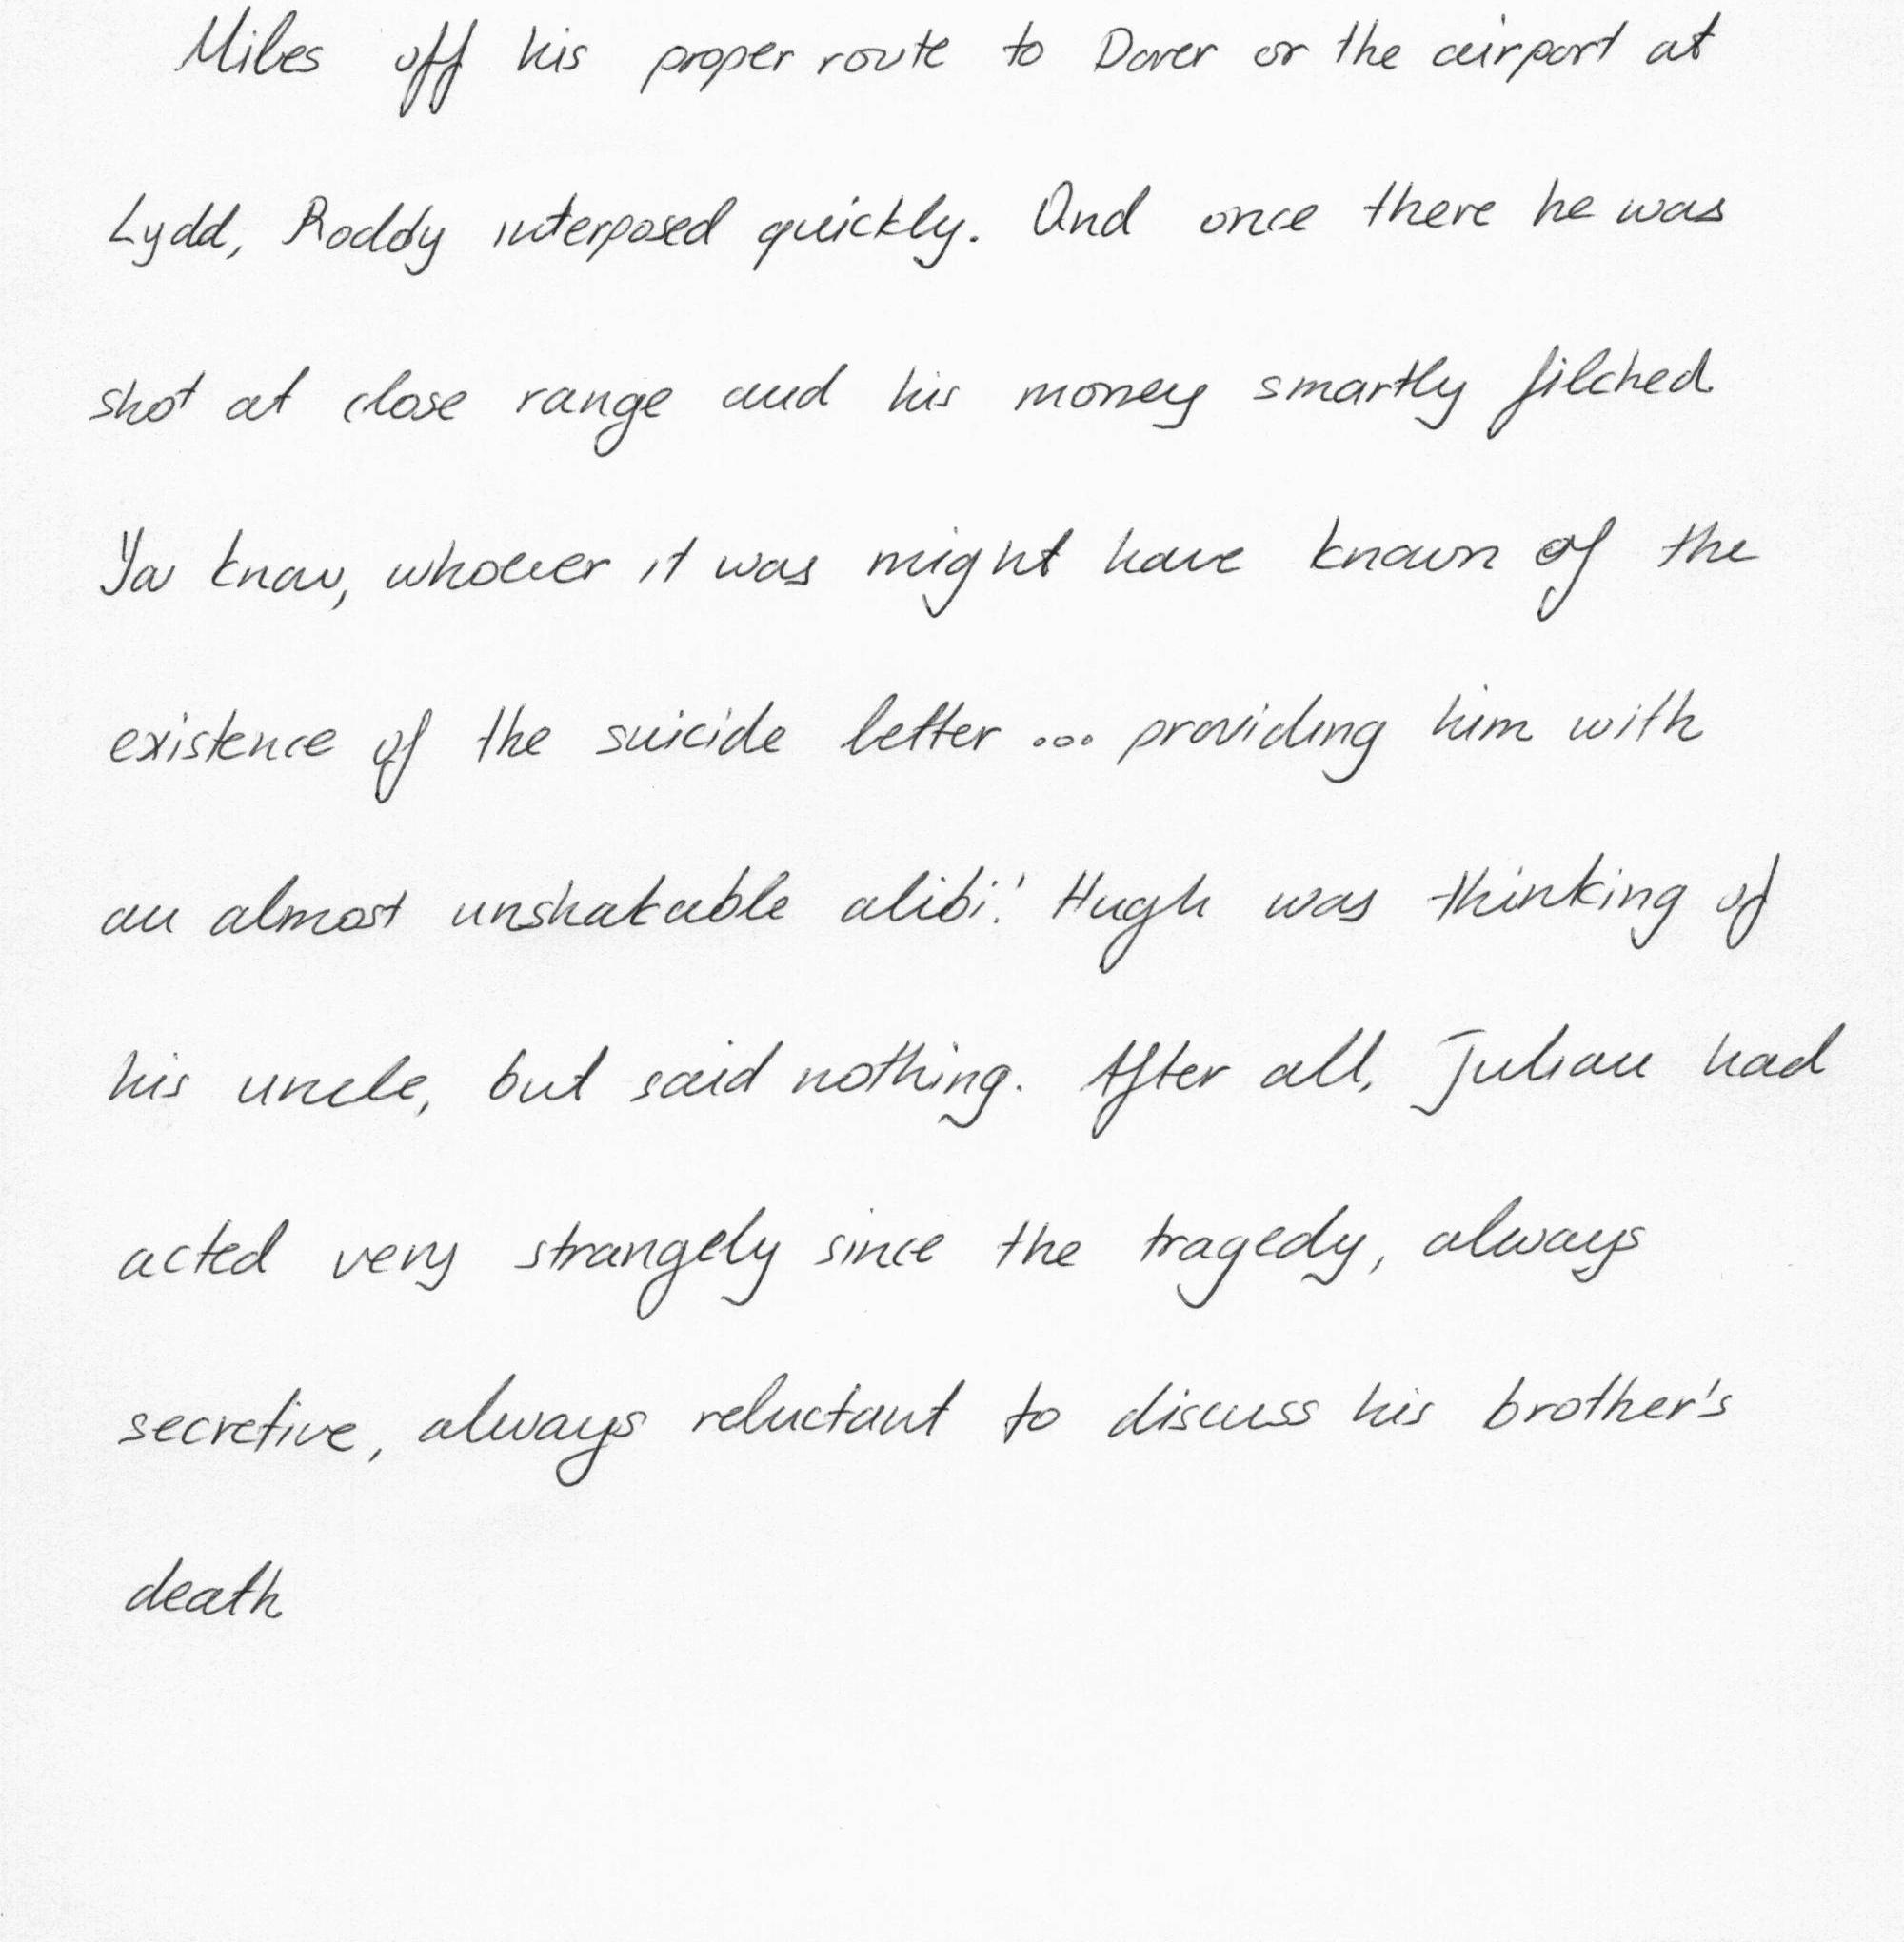 Miles off his proper route to Dover or the airport at
Lydd, Roddy interposed quickly. And once there he was
shot at close range and his money smartly filched
You know, whoever it was might have known of the
existence of the suicide letter ... providing him with
an almost unshakable alibi!' Hugh was thinking of
his uncle, but said nothing. After all, Julian had
acted very strangely since the tragedy, always
secretive, always reluctant to discuss his brother's
death